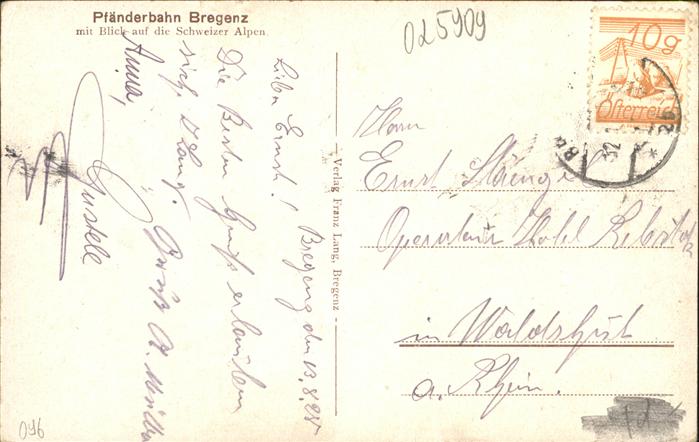 Pfänderbahn Bregenz
mit Blick auf die Schweizer Alpen.
025909
10g
Österreich
Bregenz den 13.8.25
Lieber Ernst!
Die Besten Grüße erlauben
sich
Gruß A.
Anna,
Gustele
- Verlag Franz Lang, Bregenz -
Herrn
Ernst Stänzel
Hotel Rebstock
in Waldshut
a. Rhein.
096